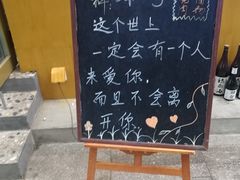 这个世上
一定会有一个人
来爱你,
而且不会离
开你